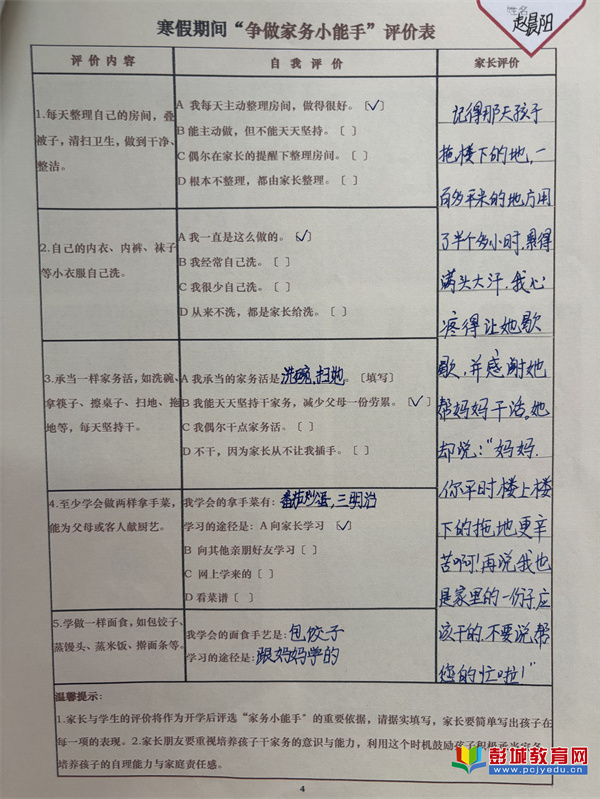 姓名
赵晨阳
寒假期间“争做家务小能手”评价表
评价内容
自我评价
家长评价
1.每天整理自己的房间，叠
被子，清扫卫生，做到干净、
整洁。
A 我每天主动整理房间，做得很好。〔✓〕
B 能主动做，但不能天天坚持。〔 〕
C 偶尔在家长的提醒下整理房间。〔 〕
D 根本不整理，都由家长整理。〔 〕
2.自己的内衣、内裤、袜子
等小衣服自己洗。
A 我一直是这么做的。〔✓〕
B 我经常自己洗。〔 〕
C 我很少自己洗。〔 〕
D 从来不洗，都是家长给洗。〔 〕
3.承当一样家务活，如洗碗、
拿筷子、擦桌子、扫地、拖
地等，每天坚持干。
A 我承当的家务活是洗碗、扫地。〔填写〕
B 我能天天坚持干家务，减少父母一份劳累。〔✓〕
C 我偶尔干点家务活。〔 〕
D 不干，因为家长从不让我插手。〔 〕
4.至少学会做两样拿手菜，
能为父母或客人献厨艺。
我学会的拿手菜有：番茄炒蛋，三明治
学习的途径是：A 向家长学习 〔✓〕
B 向其他亲朋好友学习〔 〕
C 网上学来的〔 〕
D 看菜谱〔 〕
5.学做一样面食，如包饺子、
蒸馒头、蒸米饭、擀面条等。
我学会的面食手艺是：包饺子
学习的途径是：跟妈妈学的
记得那天孩子
拖楼下的地，一
百多平米的地方用
了半个多小时，累得
满头大汗，我心
疼得让她歇
歇，并感谢她
帮妈妈干活。她
却说：“妈妈，
你平时楼上楼
下的拖地更辛
苦啊！再说，我也
是家里的一份子，应
该干的，不要说帮
您的忙啦！”
温馨提示：
1.家长与学生的评价将作为开学后评选“家务小能手”的重要依据，请据实填写，家长要简单写出孩子在
每一项的表现。2.家长朋友要重视培养孩子干家务的意识与能力，利用这个时机鼓励孩子积极承当家务，
培养孩子的自理能力与家庭责任感。
4
彭城教育网
www.pcjyedu.cn